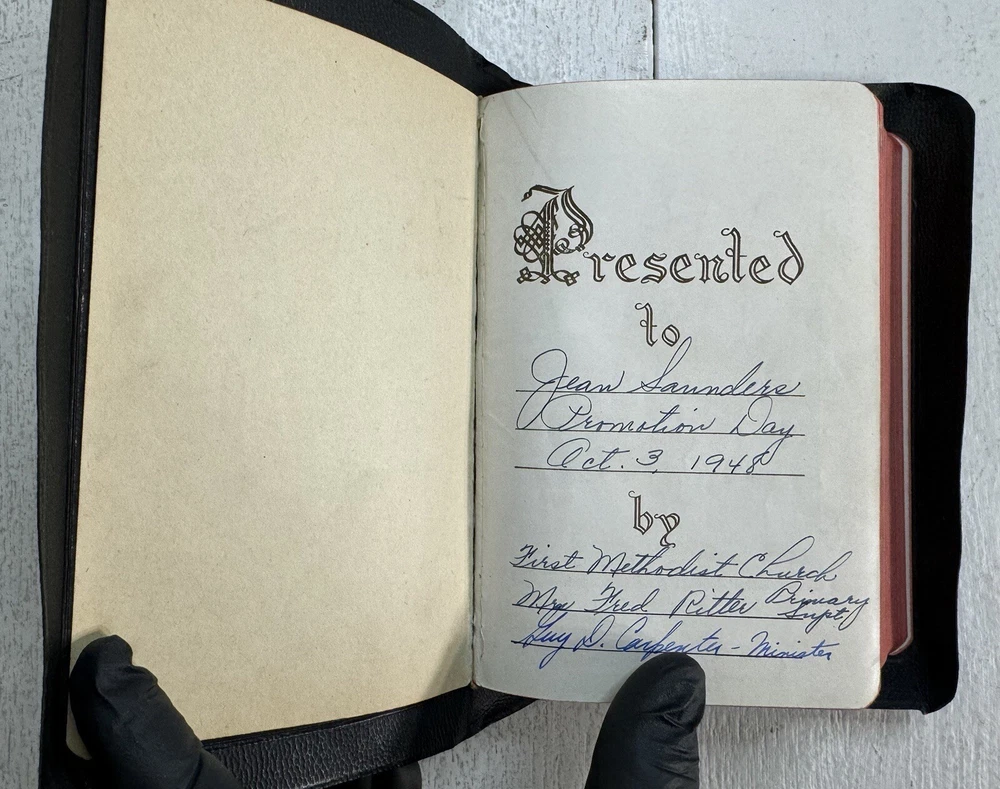 Presented
to
Jean Saunders
Promotion Day
Oct. 3, 1948
by
First Methodist Church
Mrs Fred Ritter Primary Supt
Guy D. Carpenter - Minister